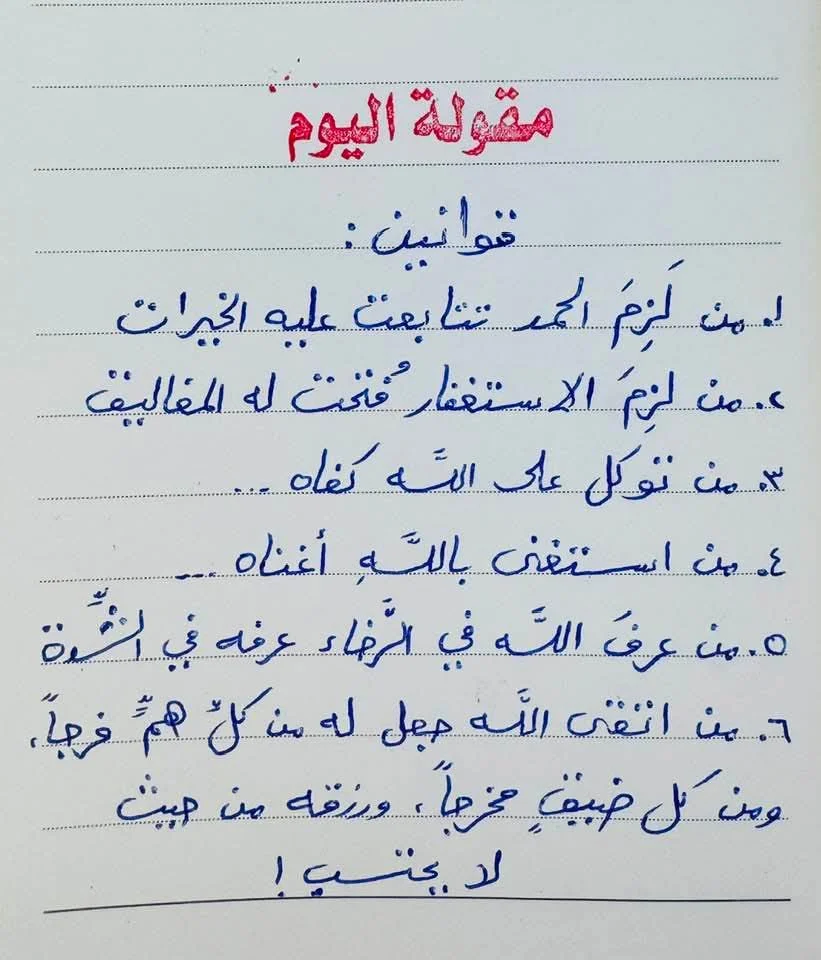 مقولة اليوم
قوانين :
١. من لَزِمَ الحمد تتابعت عليه الخيرات
٢. من لزِمَ الاستغفار فُتحت له المغاليق
٣. من توكل على اللَّه كفاه ...
٤. من استغنى باللَّهِ أغناه ...
٥. من عرفَ اللَّه في الرَّخاء عرفه في الشِّدة
٦. من اتقى اللَّه جعل له من كلِّ همٍّ فرجاً،
ومن كل ضيقٍ مخرجاً، ورزقه من حيث
لا يحتسب !